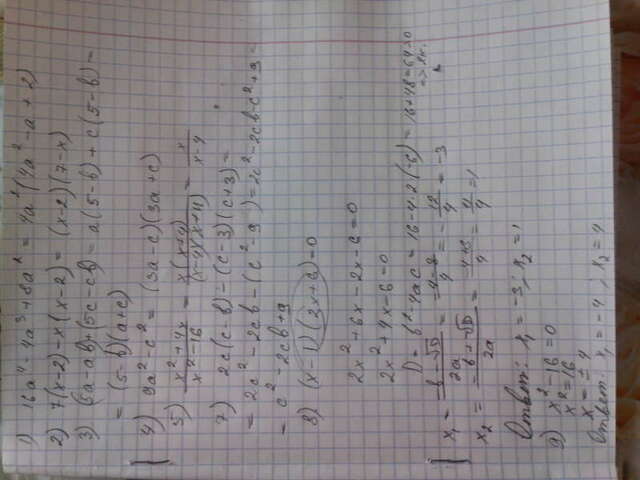 1) 16a⁴-4a³+8a² = 4a²(4a²-a+2)
2) 7(x-2)-x(x-2) = (x-2)(7-x)
3) (5a-ab)+(5c-cb)=a(5-b)+c(5-b)=
=(5-b)(a+c)
4) 9a²-c²= (3a-c)(3a+c)
5) x²+4x / x²-16 = x(x+4) / (x-4)(x+4) = x / x-4
7) 2c(c-b)-(c-3)(c+3)=
=2c²-2cb-(c²-9)=2c²-2cb-c²+9=
= c²-2cb+9
8) (x-1)(2x+6)=0
2x²+6x-2x-6=0
2x²+4x-6=0
D= b²-4ac=16-4·2(-6)=16+48=64>0
=> 2к.
x₁ = -b-√D / 2a = -4-8 / 4 = -12/4 = -3
x₂ = -b+√D / 2a = -4+8 / 4 = 4/4 = 1
Ответ: x₁ = -3; x₂ = 1
9) x²-16=0
x²=16
x= ± 4
Ответ: x₁ = -4; x₂ = 4